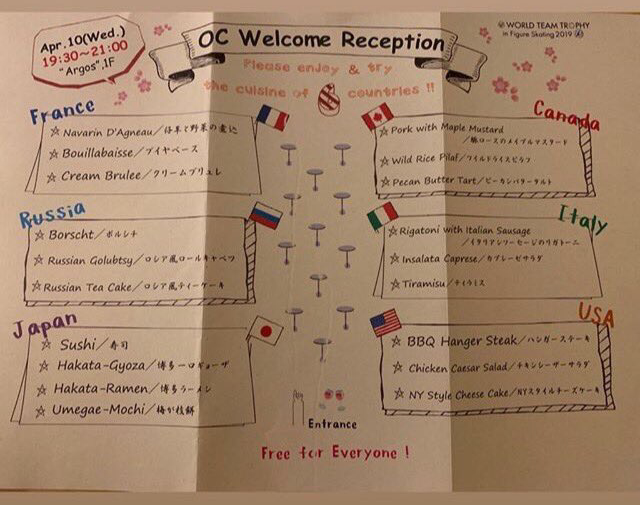 Apr.10(Wed.)
19:30~21:00
"Argos",1F
OC Welcome Reception
WORLD TEAM TROPHY
in Figure Skating 2019
Please enjoy & try
the cuisine of 6 countries !!
France
☆ Navarin D'Agneau/仔羊と野菜の煮込
☆ Bouillabaisse/ブイヤベース
☆ Cream Brulee/クリームブリュレ
Canada
☆ Pork with Maple Mustard
/豚ロースのメイプルマスタード
☆ Wild Rice Pilaf/ワイルドライスピラフ
☆ Pecan Butter Tart/ピーカンバタータルト
Russia
☆ Borscht/ボルシチ
☆ Russian Golubtsy/ロシア風ロールキャベツ
☆ Russian Tea Cake/ロシア風ティーケーキ
Italy
☆ Rigatoni with Italian Sausage
/イタリアンソーセージのリガトーニ
☆ Insalata Caprese/カプレーゼサラダ
☆ Tiramisu/ティラミス
Japan
☆ Sushi/寿司
☆ Hakata-Gyoza/博多一口ギョーザ
☆ Hakata-Ramen/博多ラーメン
☆ Umegae-Mochi/梅が枝餅
USA
☆ BBQ Hanger Steak/ハンガーステーキ
☆ Chicken Caesar Salad/チキンシーザーサラダ
☆ NY Style Cheese Cake/NYスタイルチーズケーキ
Entrance
Free for Everyone !